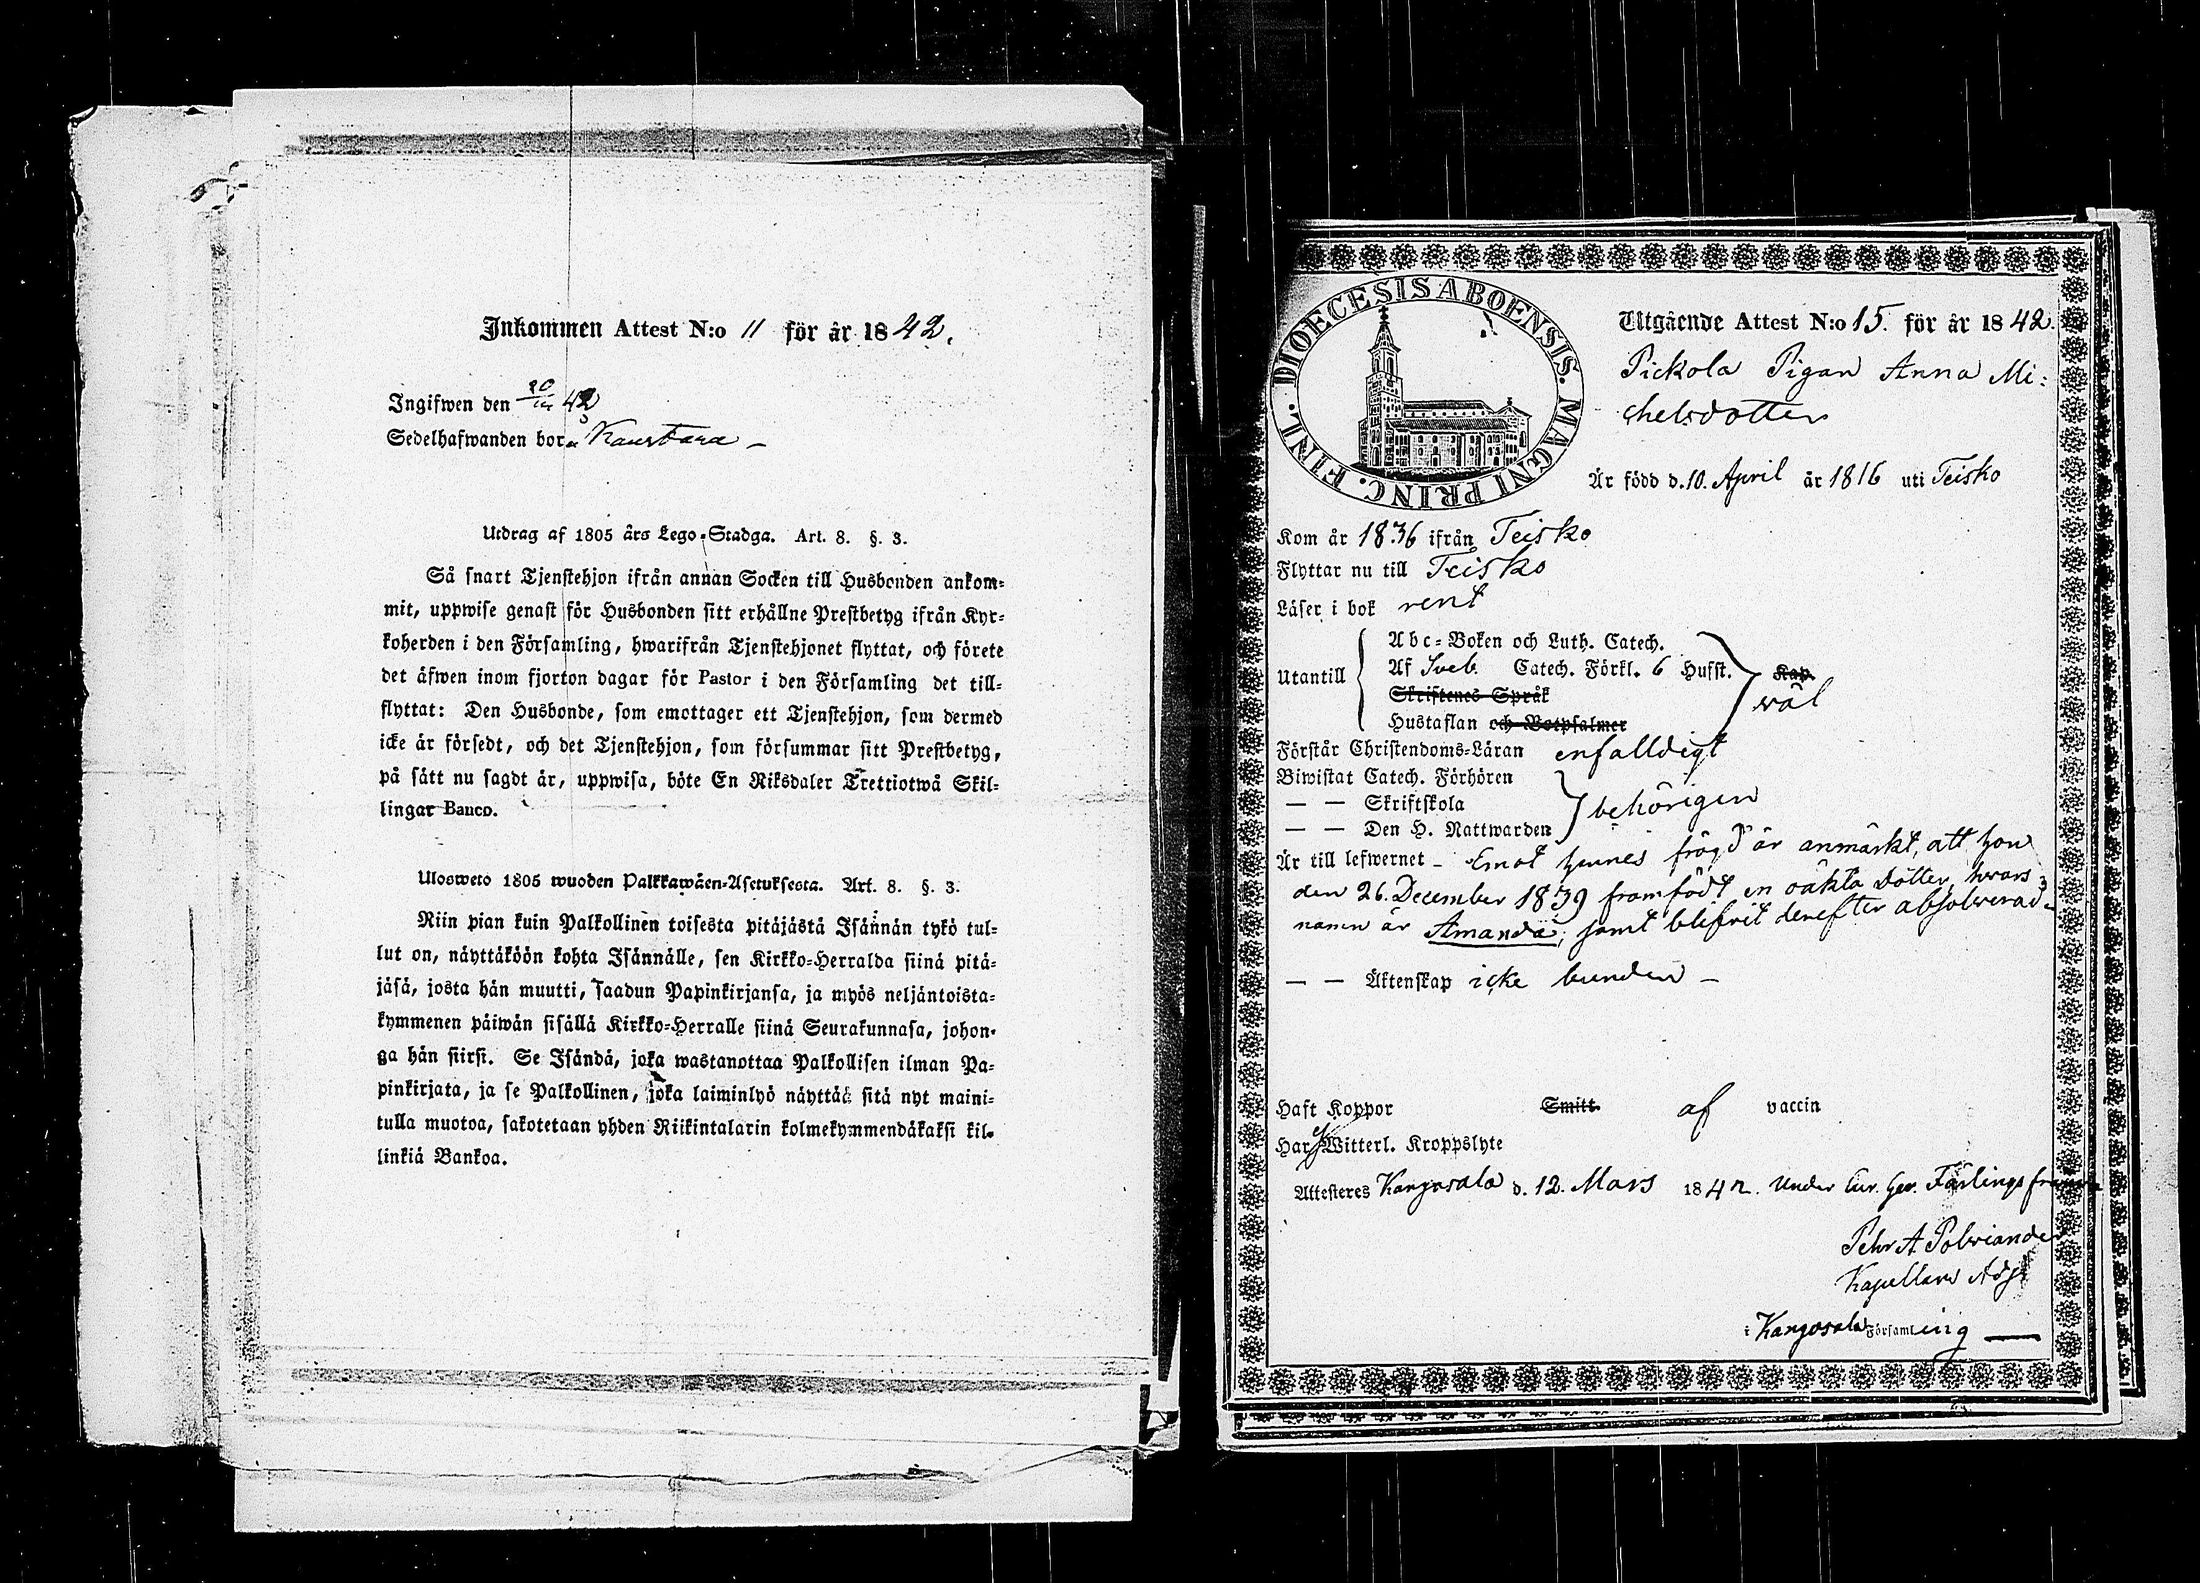 Inkommen Attest N:o 11 för år 1842.
Ingifwen den 20/3 42
Sedelhafwanden bor å Kaurtana –
Utdrag af 1805 års Lego-Stadga. Art. 8. §. 3.
Så snart Tjenstehjon ifrån annan Socken till Husbonden ankom=
mit, uppwise genast för Husbonden sitt erhållne Prestbetyg ifrån Kyr=
koherden i den Församling, hwarifrån Tjenstehjonet flyttat, och förete
det äfwen inom fjorton dagar för Pastor i den Församling det till=
flyttat: Den Husbonde, som emottager ett Tjenstehjon, som dermed
icke är försedt, och det Tjenstehjon, som försummar sitt Prestbetyg,
på sätt nu sagdt är, uppwisa, böte En Riksdaler Trettiotwå Skil=
lingar Banco.
Ulosweto 1805 wuoden Palkkawäen-Asetuksesta. Art. 8. §. 3.
Niin pian kuin Palkollinen toisesta pitäjästä Isännän tykö tul=
lut on, näyttäköön kohta Isännälle, sen Kirkko=Herralda siinä pitä=
jäsä, josta hän muutti, saadun Papinkirjansa, ja myös neljäntoista=
kymmenen päiwän sisällä Kirkko=Herralle siinä Seurakunnasa, johon=
ga hän siirsi. Se Isändä, joka wastanottaa Palkollisen ilman Pa=
pinkirjata, ja se Palkollinen, joka laiminlyö näyttää sitä nyt maini=
tulla muotoa, sakotetaan yhden Riikintalarin kolmekymmendäkaksi kil=
linkiä Bankoa.
DIOECESIS ABOENSIS. MAGNI PRINC. FINL.
Utgående Attest N:o 15. för år 1842.
Pickola Pigan Anna Mi:
chelsdotter
Är född d. 10. April år 1816 uti Teisko
Kom år 1836 ifrån Teisko
Flyttar nu till Teisko
Läser i bok rent
Abc=Boken och Luth. Catech.
Utantill Af Sveb. Catech. Förkl. 6 Hufst. Kap.
Skriftenes Språk väl
Hustaflan och Botpsalmer
Förstår Christendoms=Läran enfalldigt
Biwistat Catech. Förhören
— — Skriftskola behörigen
— — Den H. Nattwarden
Är till lefwernet – Emot hennes frägd är anmärkt, att hon
den 26. December 1839 framfödt en oäkta Dotter, hvars
namn är Amanda, samt blifvit derefter absolverad.
— — Äktenskap icke bunden –
Haft Koppor Smitt. af vaccin
Har ej Witterl. Kroppslyte
Attesteres Kangasala d. 12. Mars 1842. Under Cur. Hr.
Pehr A Polviander
Kapellans Adj.
i Kangasala Församling —